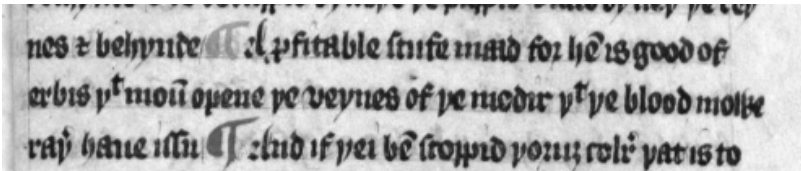 nes ⁊ behynde ¶ A ꝓfitable stufe maad for hē is good of
erbis þᵗ moū opene þe veynes of þe modir þᵗ þe blood moste
haue issu ¶ And if þei bē stoppid þoruȝ colr̉ þat is to